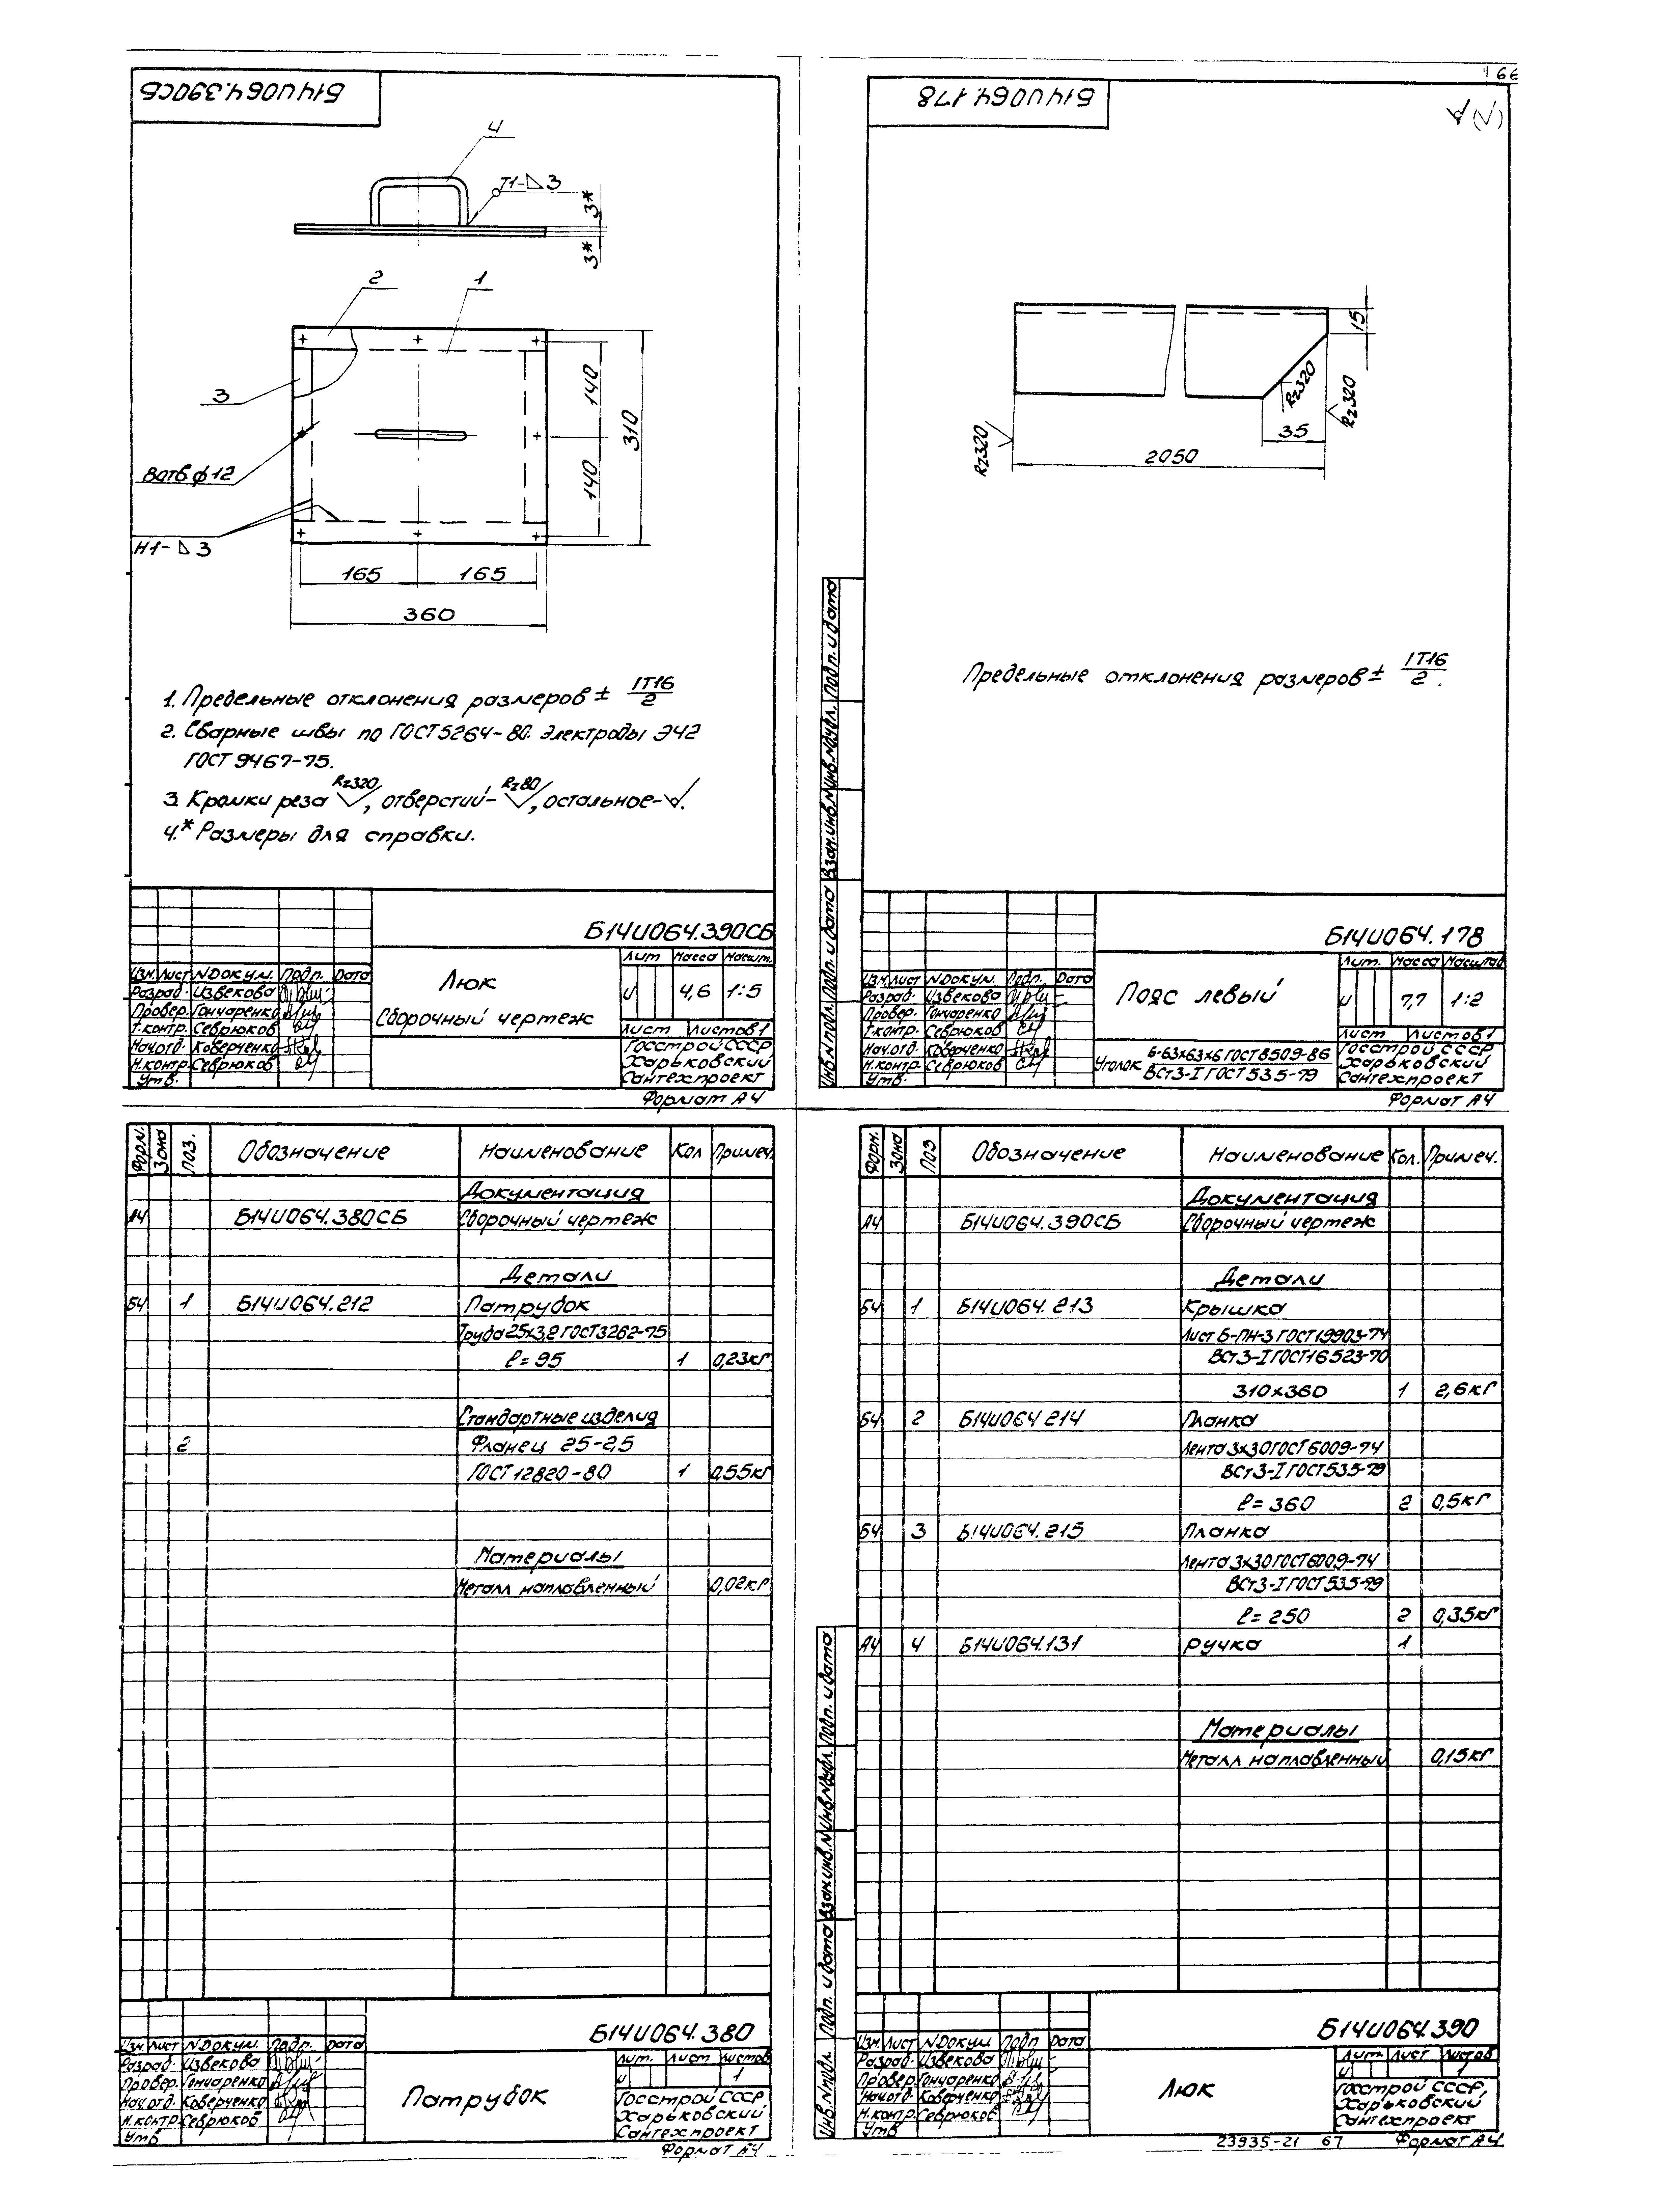 166
Б14И064.390СБ
4
Т1-△3
3*
3*
2
1
3
8отв.ϕ12
Н1-△3
140
140
310
165
165
360
1. Предельные отклонения размеров ± IT16/2
2. Сварные швы по ГОСТ 5264-80. Электроды Э42
ГОСТ 9467-75.
3. Кромки реза Rz320, отверстий- Rz80, остальное-
4.* Размеры для справки.
Б14И064.390СБ
Изм. Лист N Докум. Подп. Дата
Разраб. Извекова
Провер. Гончаренко
Т.контр. Севрюков
Нач.отд. Коверченко
Н.контр. Севрюков
Утв.
Люк
Сборочный чертеж
Лит. Масса Масшт.
И 4,6 1:5
Лист Листов 1
Госстрой СССР
Харьковский
Сантехпроект
Формат А4
Б14И064.178
(√)
15
Rz320
Rz320
Rz320
35
2050
Предельные отклонения размеров ± IT16/2.
Инв.N подл. Подп. и дата Взам.инв.N Инв.N дубл. Подп. и дата
Б14И064.178
Изм. Лист N Докум. Подп. Дата
Разраб. Извекова
Провер. Гончаренко
Т.контр. Севрюков
Нач.отд. Коверченко
Н.контр. Севрюков
Утв.
Пояс левый
Уголок Б-63х63х6 ГОСТ 8509-86
ВСт3-I ГОСТ 535-79
Лит. Масса Масштаб
И 7,7 1:2
Лист Листов 1
Госстрой СССР
Харьковский
Сантехпроект
Формат А4
Форм. Зона Поз. Обозначение Наименование Кол Примеч.
Документация
А4 Б14И064.380СБ Сборочный чертеж
Детали
Б4 1 Б14И064.212 Патрубок
Труба 25х3,2 ГОСТ 3262-75
ℓ=95 1 0,23кг
Стандартные изделия
2 Фланец 25-2,5
ГОСТ 12820-80 1 0,55кг
Материалы
Металл наплавленный 0,02кг
Б14И064.380
Изм. Лист N Докум. Подп. Дата
Разраб. Извекова
Провер. Гончаренко
Нач.отд. Коверченко
Н.контр. Севрюков
Утв
Патрубок
Лит. Лист Листов
И 1
Госстрой СССР
Харьковский
Сантехпроект
Формат А4
Форм. Зона Поз Обозначение Наименование Кол. Примеч.
Документация
А4 Б14И064.390СБ Сборочный чертеж
Детали
Б4 1 Б14И064.213 Крышка
Лист Б-ПН-3 ГОСТ 19903-74
ВСт3-I ГОСТ 16523-70
310х360 1 2,6кг
Б4 2 Б14И064.214 Планка
Лента 3х30 ГОСТ 6009-74
ВСт3-I ГОСТ 535-79
ℓ=360 2 0,5кг
Б4 3 Б14И064.215 Планка
Лента 3х30 ГОСТ 6009-74
ВСт3-I ГОСТ 535-79
ℓ=250 2 0,35кг
А4 4 Б14И064.131 Ручка 1
Материалы
Металл наплавленный 0,15кг
Инв.N подл. Подп. и дата Взам.инв.N Инв.N дубл. Подп. и дата
Б14И064.390
Изм. Лист N Докум. Подп Дата
Разраб. Извекова
Провер. Гончаренко
Нач.отд. Коверченко
Н.контр. Севрюков
Утв
Люк
Лит. Лист Листов
И 1
Госстрой СССР,
Харьковский
Сантехпроект
23935-21 67 Формат А4